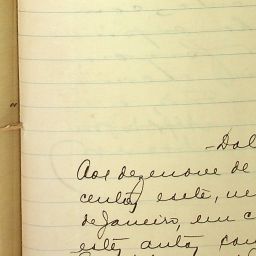 -Dal
Aos dezenove de
centos e sete, ne
de Janeiro, em c
estes autos con